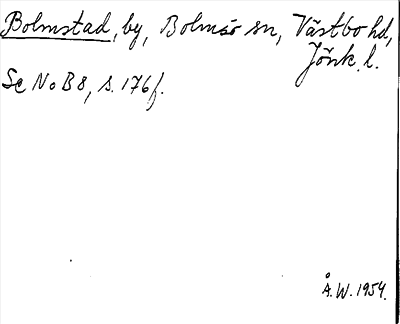 Bolmstad, by, Bolmsö sn, Västbo hd,
Jönk. l.
Se NoB 8, s. 176 f.
Å. W. 1954.